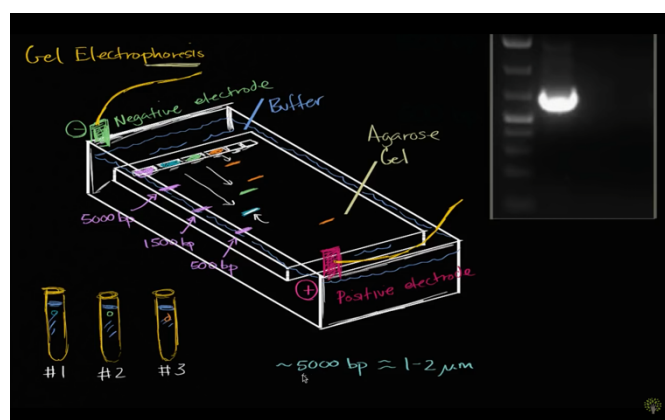 Gel Electrophoresis
Negative electrode
Buffer
Agarose
Gel
5000 bp
1500 bp
500 bp
+
Positive electrode
#1 #2 #3
~5000 bp ≈ 1-2 μm